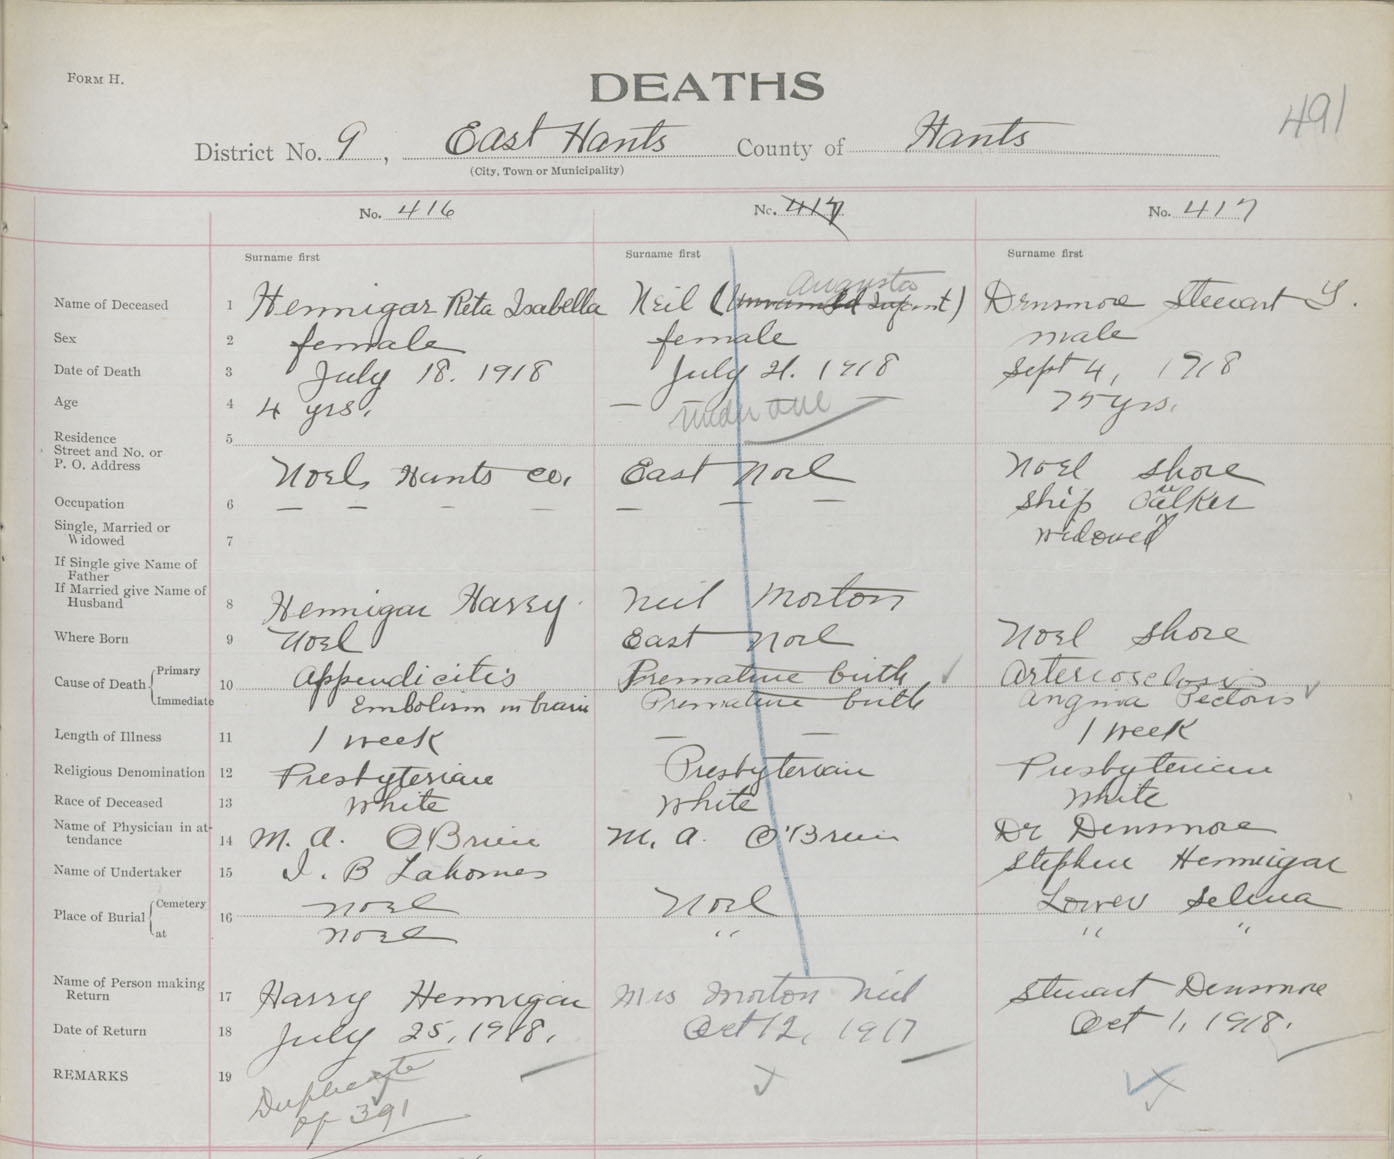 FORM H.
DEATHS
491
District No. 9, East Hants County of Hants
(City, Town or Municipality)
No. 416 No. 417 No. 417
Surname first Surname first Surname first
Augusta
Name of Deceased 1 Hennigar Reta Isabella Neil (Unnamed Infant) Densmore Stewart Y.
Sex 2 female female male
Date of Death 3 July 18. 1918 July 21. 1918 Sept 4, 1918
Age 4 4 yrs. — under one — 75 yrs.
Residence 5
Street and No. or
P. O. Address Noel, Hants Co. East Noel Noel Shore
Occupation 6 — — — — — — — Ship Caulker
Single, Married or
Widowed 7 widowed
If Single give Name of
Father
If Married give Name of
Husband 8 Hennigar Harry. Neil Morton
Where Born 9 Noel East Noel Noel Shore
Cause of Death Primary 10 Appendicitis Premature birth Arteriosclosis
Immediate Embolism in brain Premature birth Angina Pectoris
Length of Illness 11 1 week — — 1 week
Religious Denomination 12 Presbyterian Presbyterian Presbyterian
Race of Deceased 13 White White White
Name of Physician in at-
tendance 14 M. A. O'Brien M. A. O'Brien Dr Densmore
Name of Undertaker 15 I. B Lahomes Stephen Hennigar
Place of Burial Cemetery 16 Noel Noel Lower Selma
at Noel " " "
Name of Person making
Return 17 Harry Hennigar Mrs Morton Neil Stewart Densmore
Date of Return 18 July 25, 1918. Oct 12, 1917 Oct 1, 1918.
REMARKS 19 Duplicate
of 391